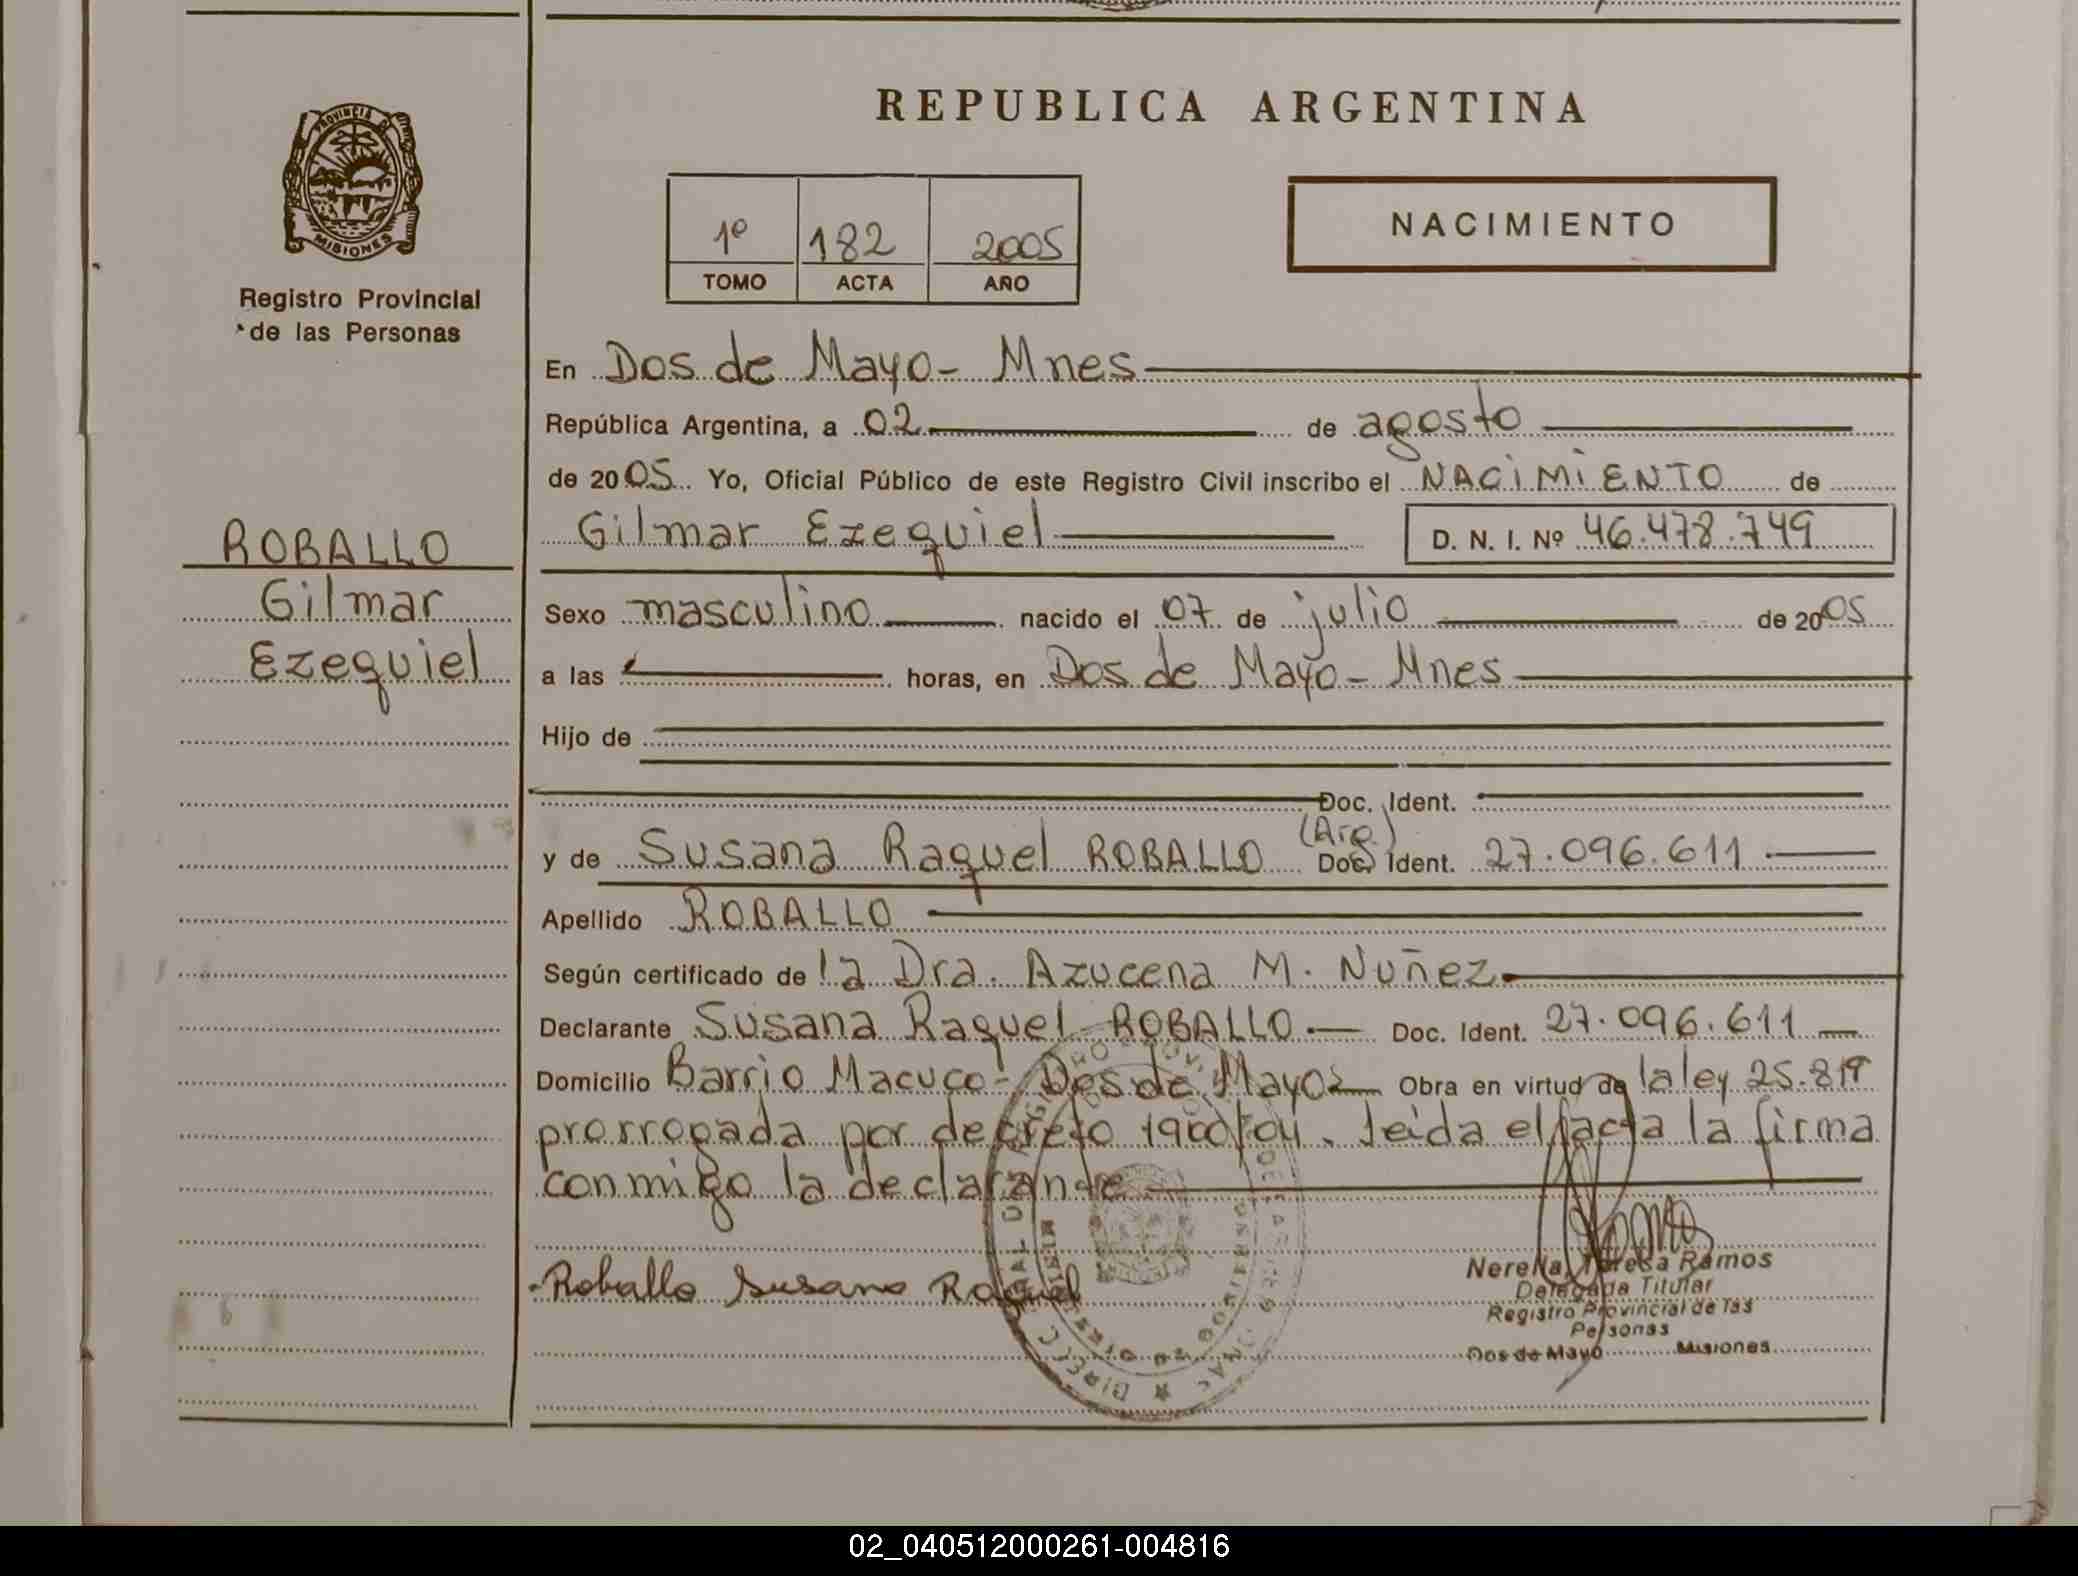 PROVINCIA DE
MISIONES
Registro Provincial
de las Personas
ROBALLO
Gilmar
Ezequiel
REPUBLICA ARGENTINA
1º 182 2005
TOMO ACTA AÑO
NACIMIENTO
En Dos de Mayo - Mnes
República Argentina, a 02 de agosto
de 2005 Yo, Oficial Público de este Registro Civil inscribo el NACIMIENTO de
Gilmar Ezequiel D. N. I. Nº 46.478.749
Sexo masculino nacido el 07 de julio de 2005
a las horas, en Dos de Mayo - Mnes
Hijo de
Doc. Ident.
(Arg.)
y de Susana Raquel ROBALLO Doc. Ident. 27.096.611
Apellido ROBALLO
Según certificado de la Dra. Azucena M. Nuñez
Declarante Susana Raquel ROBALLO. Doc. Ident. 27.096.611
Domicilio Barrio Macuco - Dos de Mayo Obra en virtud de la ley 25.819
prorrogada por decreto 1900/04. leida el acta la firma
conmigo la declarante
Roballo Susana Raquel
Nerella Teresa Ramos
Delegada Titular
Registro Provincial de las
Personas
Dos de Mayo Misiones
02_040512000261-004816